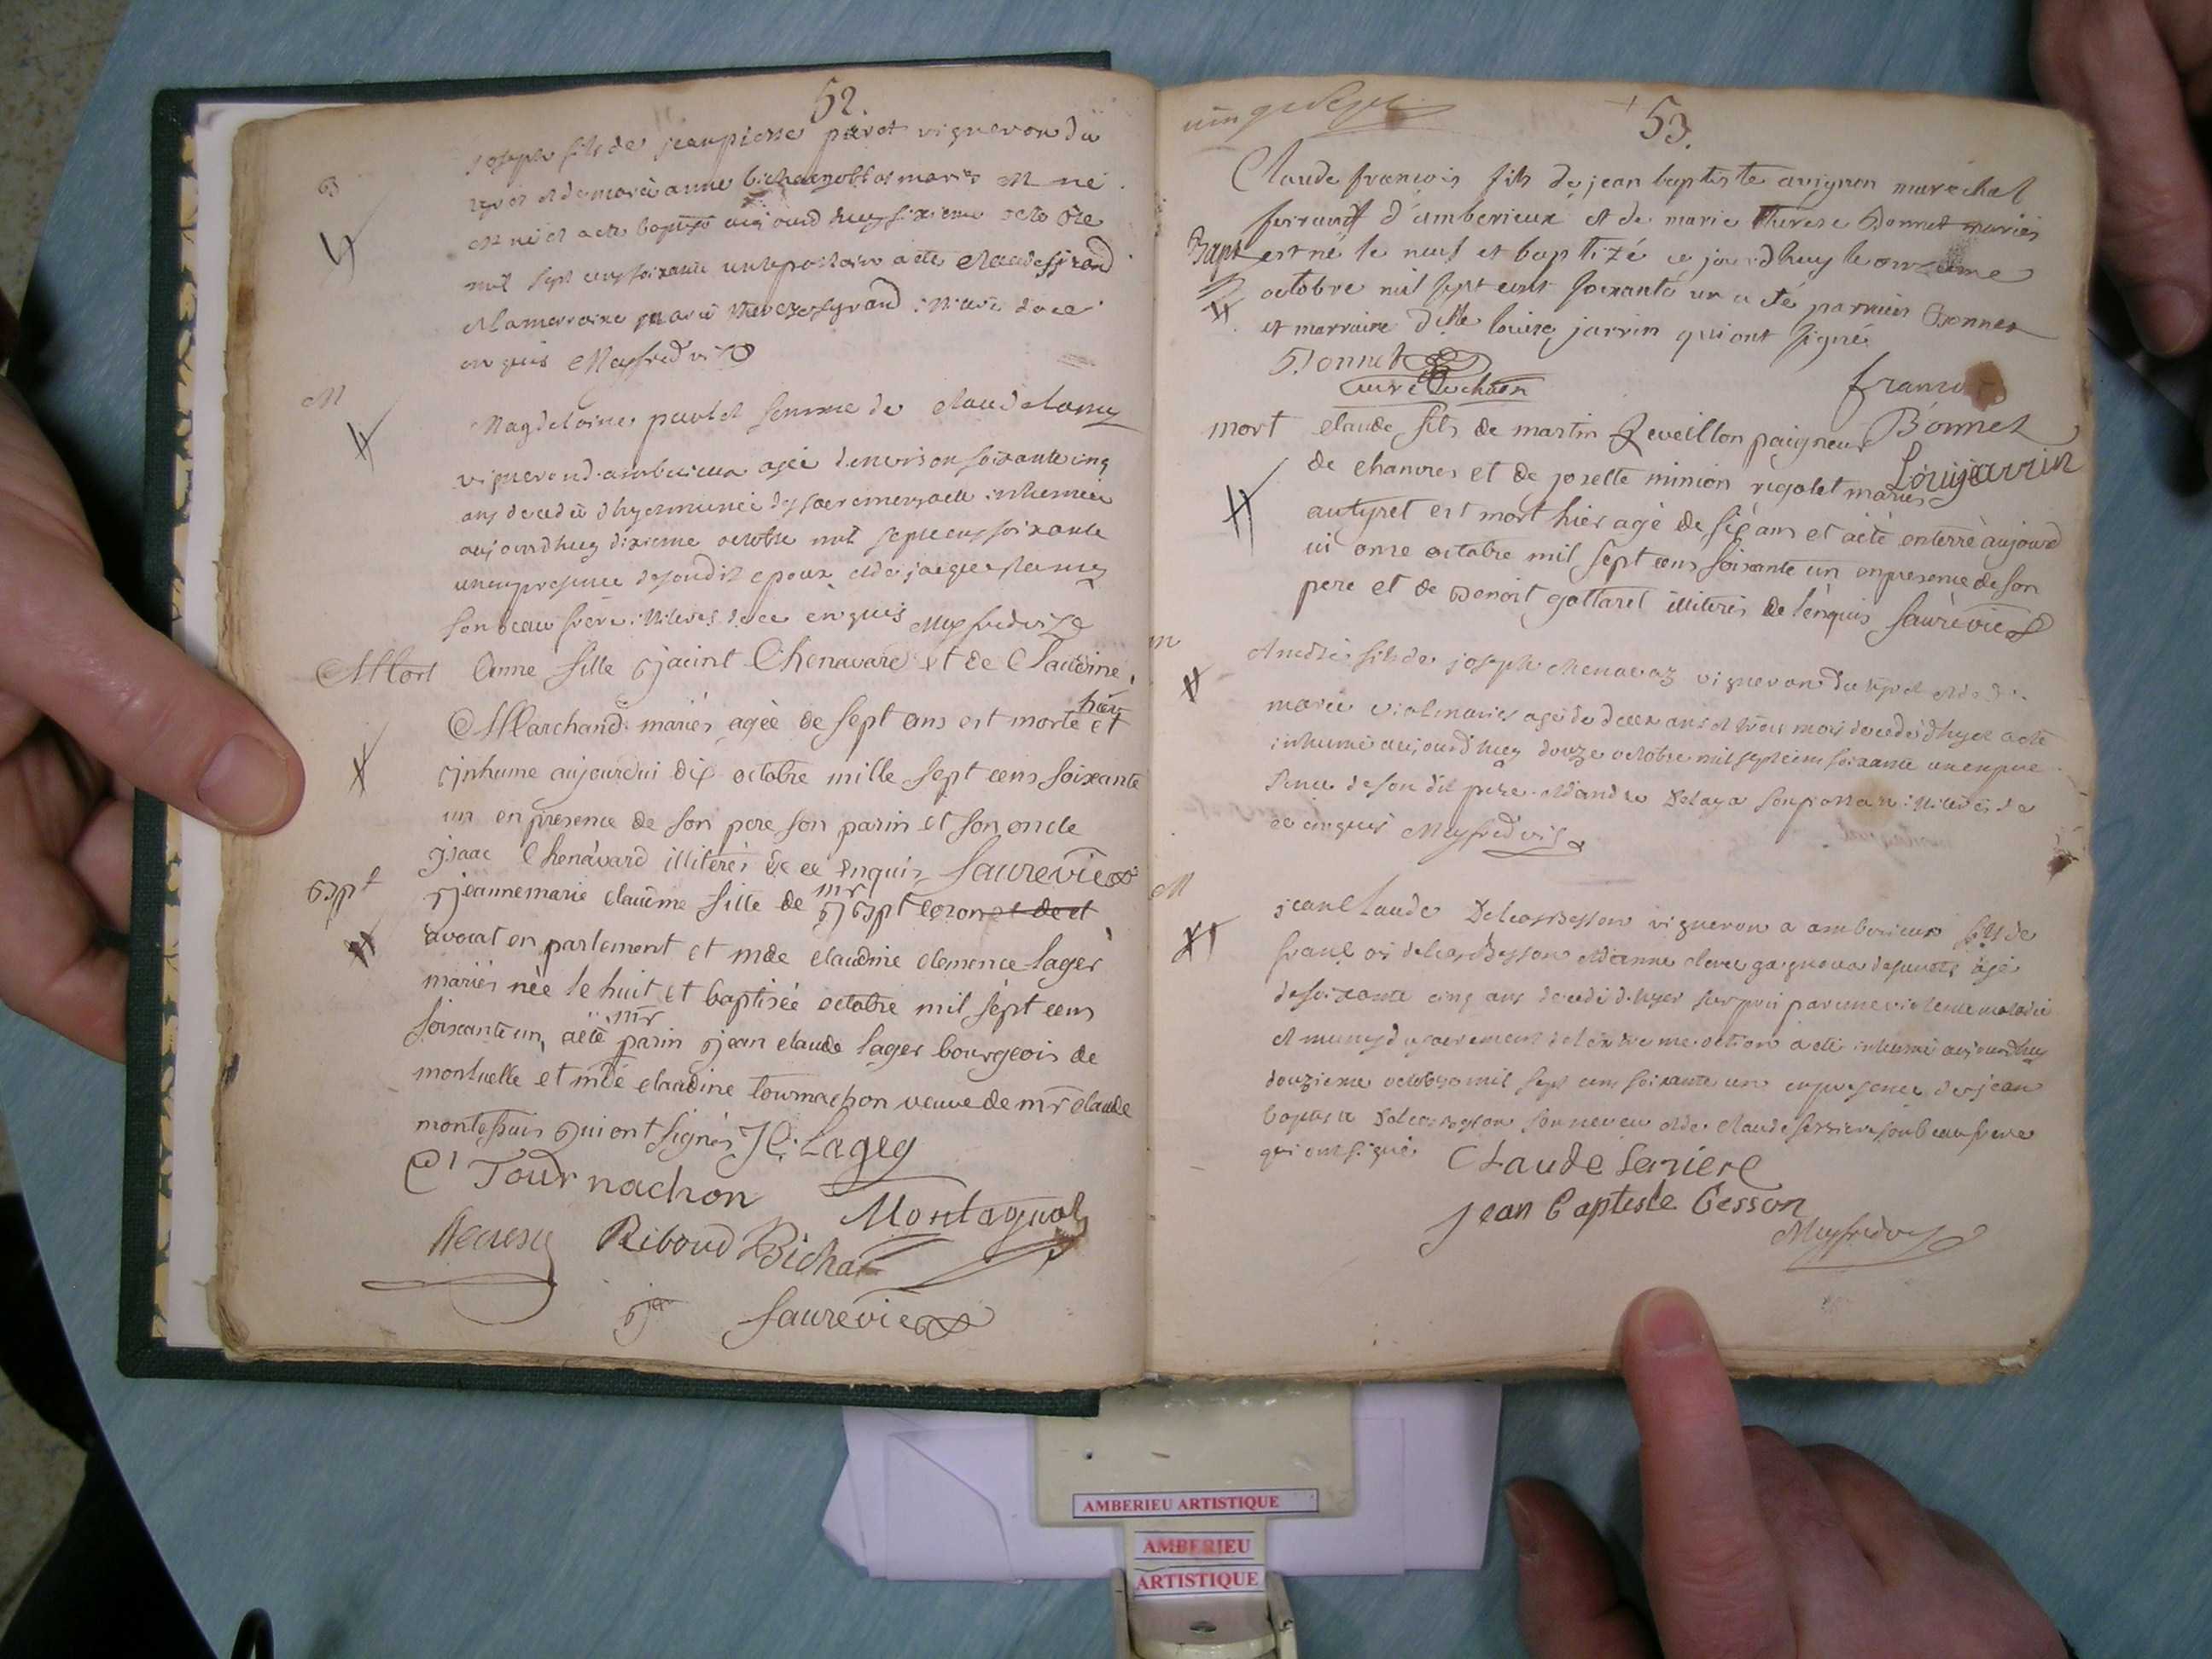 52.
B
joseph fils de jeanpierre pirot vigneron du
tiret et de marie anne bichanoll et maries
est né et acte baptisé aujourd huy sixieme octobre
mil sept cens soixante un le parrain a été claude sirand
et la marraine marie thereze sirand illiteré de ce
enquis Meyfred vic
M
Magdelaine paulet femme de claude lamy
vigneron d'amberieux agée d'environ soixante cinq
ans decedée d'hyer munie des sacremens a été inhumée
aujourd huy dixieme octobre mil sept cens soixante
un en presence de son dit epoux et de jacque lamy
son beau frere illiteres de ce enquis Meyfred vic
Mort Anne fille hjacint Chenavard et de Claudine
Marchand mariés agée de sept ans est morte hier et
inhume aujourdui dix octobre mille sept cens soixante
un en presence de son pere son parin et son oncle
isaac Chenavard illiterés de ce enquis faurevic
Bapt jeannemarie claudine fille de mr j Bapt cozon et de et
avocat en parlement et mde claudine clemence lager
mariés née le huit et baptisée octobre mil sept cens
soixante un, aété parin mr jean claude lager bourgeois de
montuelle et mde claudine tournachon veuve de mr claude
montessuis qui ont signés JC. Lager
Cl Tournachon
Montagnat
Riboud Bichat
faurevic
53.
Claude francois fils de jean baptiste avignon maréchal
ferrand d'amberieux et de marie therese Bonnet mariés
Bapt est né le neuf et baptizé ce jourdhuy le onzieme
octobre mil sept cent soixante un a été parrain Bonnet
et marraine Dlle louise jarrin qui ont signé
Bonnet
curé
francois
Bonnet
Louis jarrin
mort claude fils de martin Reveillon paigneur
de chanvres et de josette minion rigolet mariés
autyret est mort hier agé de six ans et aété enterré aujourd
ui onze octobre mil sept cens soixante un en presence de son
pere et de Benoit gottaret illiterés de l'enquis faurévic
m
André fils de joseph chenavaz vigneron du tiret et de
marie vial maries agé de deux ans et trois mois decedé d'hyer a été
inhumé aujourd huy douze octobre mil sept cens soixante un en pre
sence de son dit pere et andré Delaya son parrain illiterés de
ce enquis Meyfred vic
M
jean Claude Delcasbesson vigneron a amberieux fils de
francois delcasbesson et d'anne claire gagneux defunts agé
de soixante cinq ans decedé d'hyer surpris par une violente maladie
et muny du sacrement de l'extreme onction a été inhumé aujourdhuy
douzieme octobre mil sept cens soixante un en presence de jean
baptiste Delcasbesson son neveu et de claude ferriere son beau frere
qui ont signé
Claude feriere
jean baptiste besson
Meyfred vic
AMBERIEU ARTISTIQUE
AMBERIEU
ARTISTIQUE